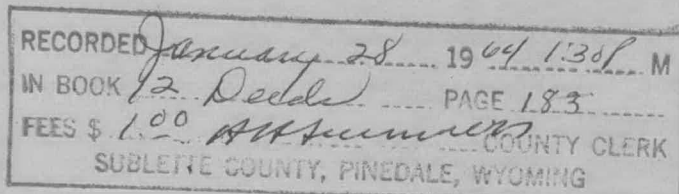 RECORDED January 28 1964 1:30 P M
IN BOOK 12 Deeds PAGE 183
FEES $ 1.00 COUNTY CLERK
SUBLETTE COUNTY, PINEDALE, WYOMING